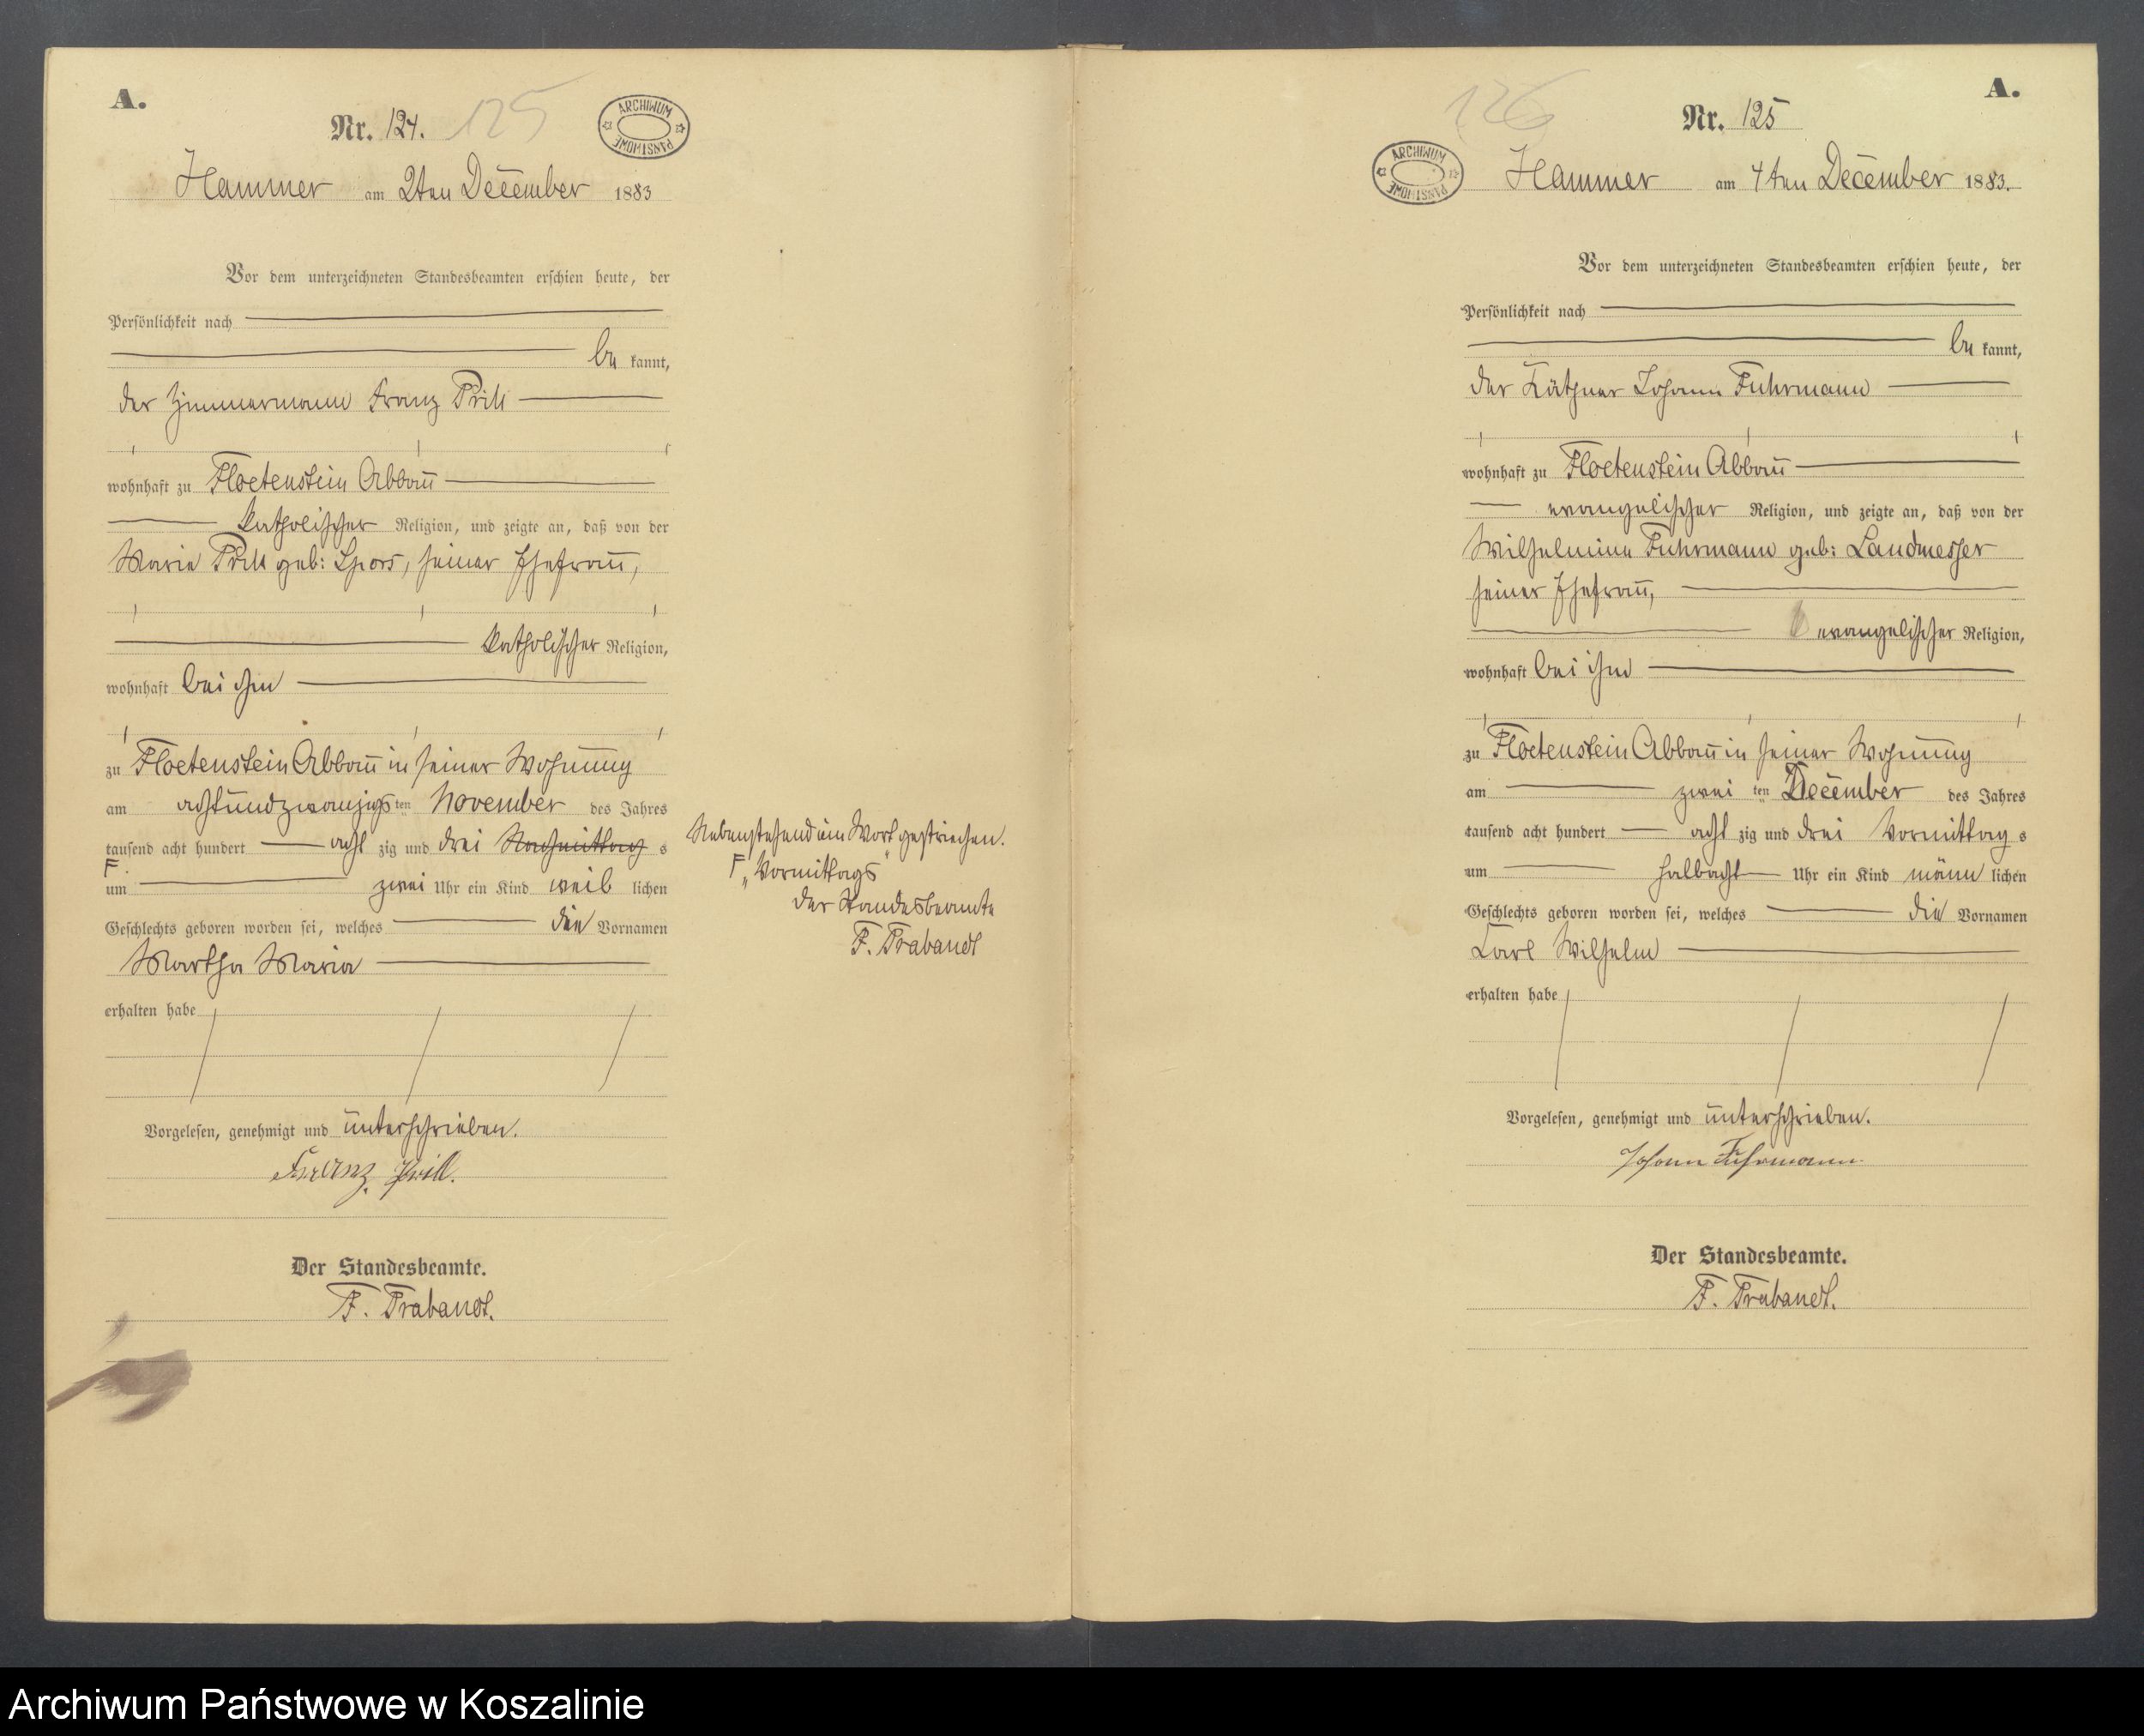 A.
Nr. 124. 125
ARCHIWUM PAŃSTWOWE
Hammer am 2ten December 1883
Vor dem unterzeichneten Standesbeamten erschien heute, der
Persönlichkeit nach
be kannt,
der Zimmermann Franz Prill
wohnhaft zu Floetenstein Abbau
katholischer Religion, und zeigte an, daß von der
Marie Prill geb: Spors, seiner Ehefrau,
katholischer Religion,
wohnhaft bei ihm
zu Floetenstein Abbau in seiner Wohnung
am achtundzwanzigsten November des Jahres
tausend acht hundert acht zig und drei Nachmittag s
F.
um zwei Uhr ein Kind weib lichen
Geschlechts geboren worden sei, welches die Vornamen
Martha Maria
erhalten habe
Vorgelesen, genehmigt und unterschrieben.
Franz Prill.
Der Standesbeamte.
F. Trabandt.
Nebenstehend ein Wort gestrichen.
F „Vormittags"
der Standesbeamte
F. Trabandt
A.
126
Nr. 125
ARCHIWUM PAŃSTWOWE
Hammer am 4ten December 1883.
Vor dem unterzeichneten Standesbeamten erschien heute, der
Persönlichkeit nach
be kannt,
der Käthner Johann Fuhrmann
wohnhaft zu Floetenstein Abbau
evangelischer Religion, und zeigte an, daß von der
Wilhelmine Fuhrmann geb: Landmesser
seiner Ehefrau,
evangelischer Religion,
wohnhaft bei ihm
zu Floetenstein Abbau in seiner Wohnung
am zwei ten December des Jahres
tausend acht hundert acht zig und drei Vormittag s
um halbacht Uhr ein Kind männ lichen
Geschlechts geboren worden sei, welches die Vornamen
Carl Wilhelm
erhalten habe
Vorgelesen, genehmigt und unterschrieben.
Johann Fuhrmann
Der Standesbeamte.
F. Trabandt.
Archiwum Państwowe w Koszalinie